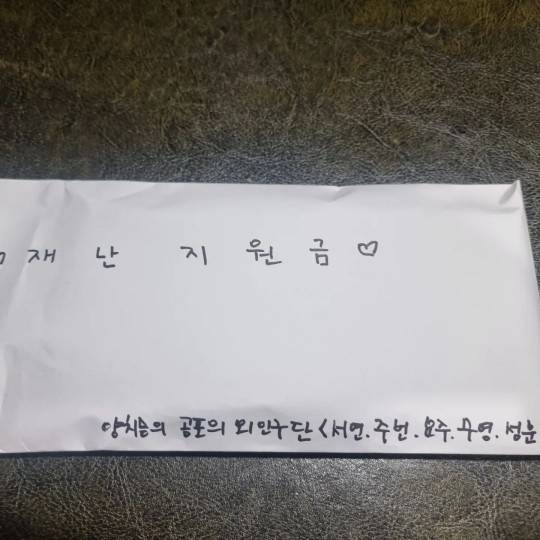 ♡재난 지원금♡
양치승의 공포의 외인구단<서연.주번.요주.무영.성훈